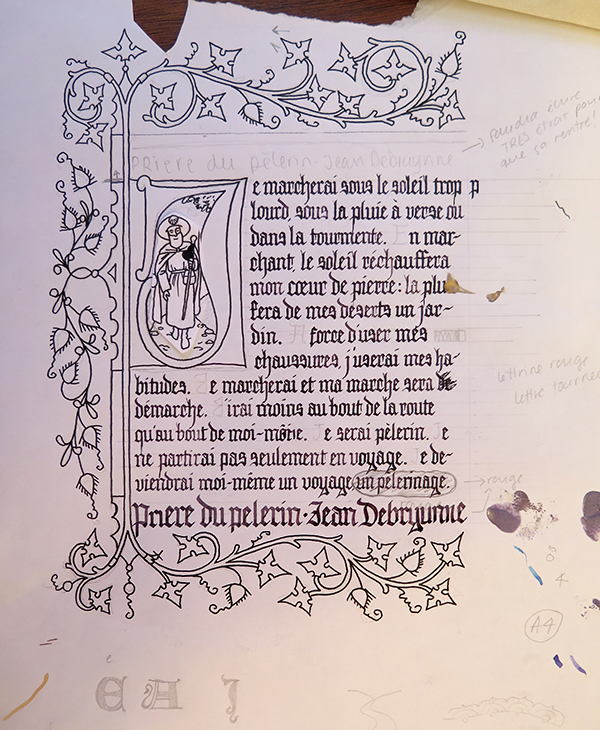 Prière du pèlerin · Jean Debruynne
→ Faudra écrire
TRES étroit pour
que ça rentre!
J e marcherai sous le soleil trop p
lourd, sous la pluie à verse ou
dans la tourmente. En mar-
chant, le soleil réchauffera
mon cœur de pierre: la plu
fera de mes déserts un jar-
din. A force d'user mes
chaussures, j'userai mes ha-
bitudes. Je marcherai et ma marche sera
démarche. J'irai moins au bout de la route
qu'au bout de moi-même. Je serai pèlerin. Je
ne partirai pas seulement en voyage. Je de-
viendrai moi-même un voyage, un pèlerinage.
→ rouge
Prière du pelerin · Jean Debryunne
A4
É A J